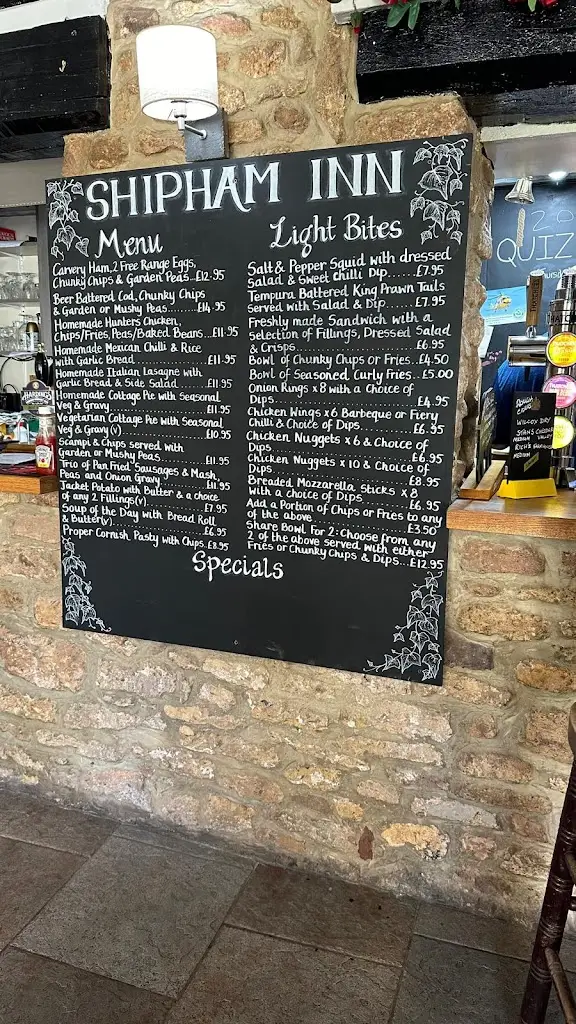 SHIPHAM INN
Menu
Carvery Ham, 2 Free Range Eggs,
Chunky Chips & Garden Peas...£12.95
Beer Battered Cod, Chunky Chips
& Garden or Mushy Peas........£14.95
Homemade Hunters Chicken,
Chips/Fries, Peas/Baked Beans...£11.95
Homemade Mexican Chilli & Rice
with Garlic Bread..................£11.95
Homemade Italian Lasagne with
Garlic Bread & Side Salad......£11.95
Homemade Cottage Pie with Seasonal
Veg & Gravy........................£11.95
Vegetarian Cottage Pie with Seasonal
Veg & Gravy(v)....................£10.95
Scampi & Chips served with
Garden or Mushy Peas............£11.95
Trio of Pan Fried Sausages & Mash,
Peas and Onion Gravy............£11.95
Jacket Potato with Butter & a choice
of any 2 Fillings(v)................£7.95
Soup of the Day with Bread Roll
& Butter(v)..........................£6.95
Proper Cornish Pasty with Chips.£8.95
Light Bites
Salt & Pepper Squid with dressed
Salad & Sweet Chilli Dip......£7.95
Tempura Battered King Prawn Tails
served with Salad & Dip......£7.95
Freshly made Sandwich with a
selection of Fillings, Dressed Salad
& Crisps..............................£6.95
Bowl of Chunky Chips or Fries..£4.50
Bowl of Seasoned Curly Fries..£5.00
Onion Rings x8 with a Choice of
Dips....................................£4.95
Chicken Wings x6 Barbeque or Fiery
Chilli & Choice of Dips.........£6.95
Chicken Nuggets x6 & Choice of
Dips....................................£6.95
Chicken Nuggets x10 & Choice of
Dips....................................£8.95
Breaded Mozzarella Sticks x8
with a choice of Dips............£6.95
Add a Portion of Chips or Fries to any
of the above........................£3.50
Share Bowl For 2: Choose from any
2 of the above served with either
Fries or Chunky Chips & Dips...£12.95
Specials
QUIZ